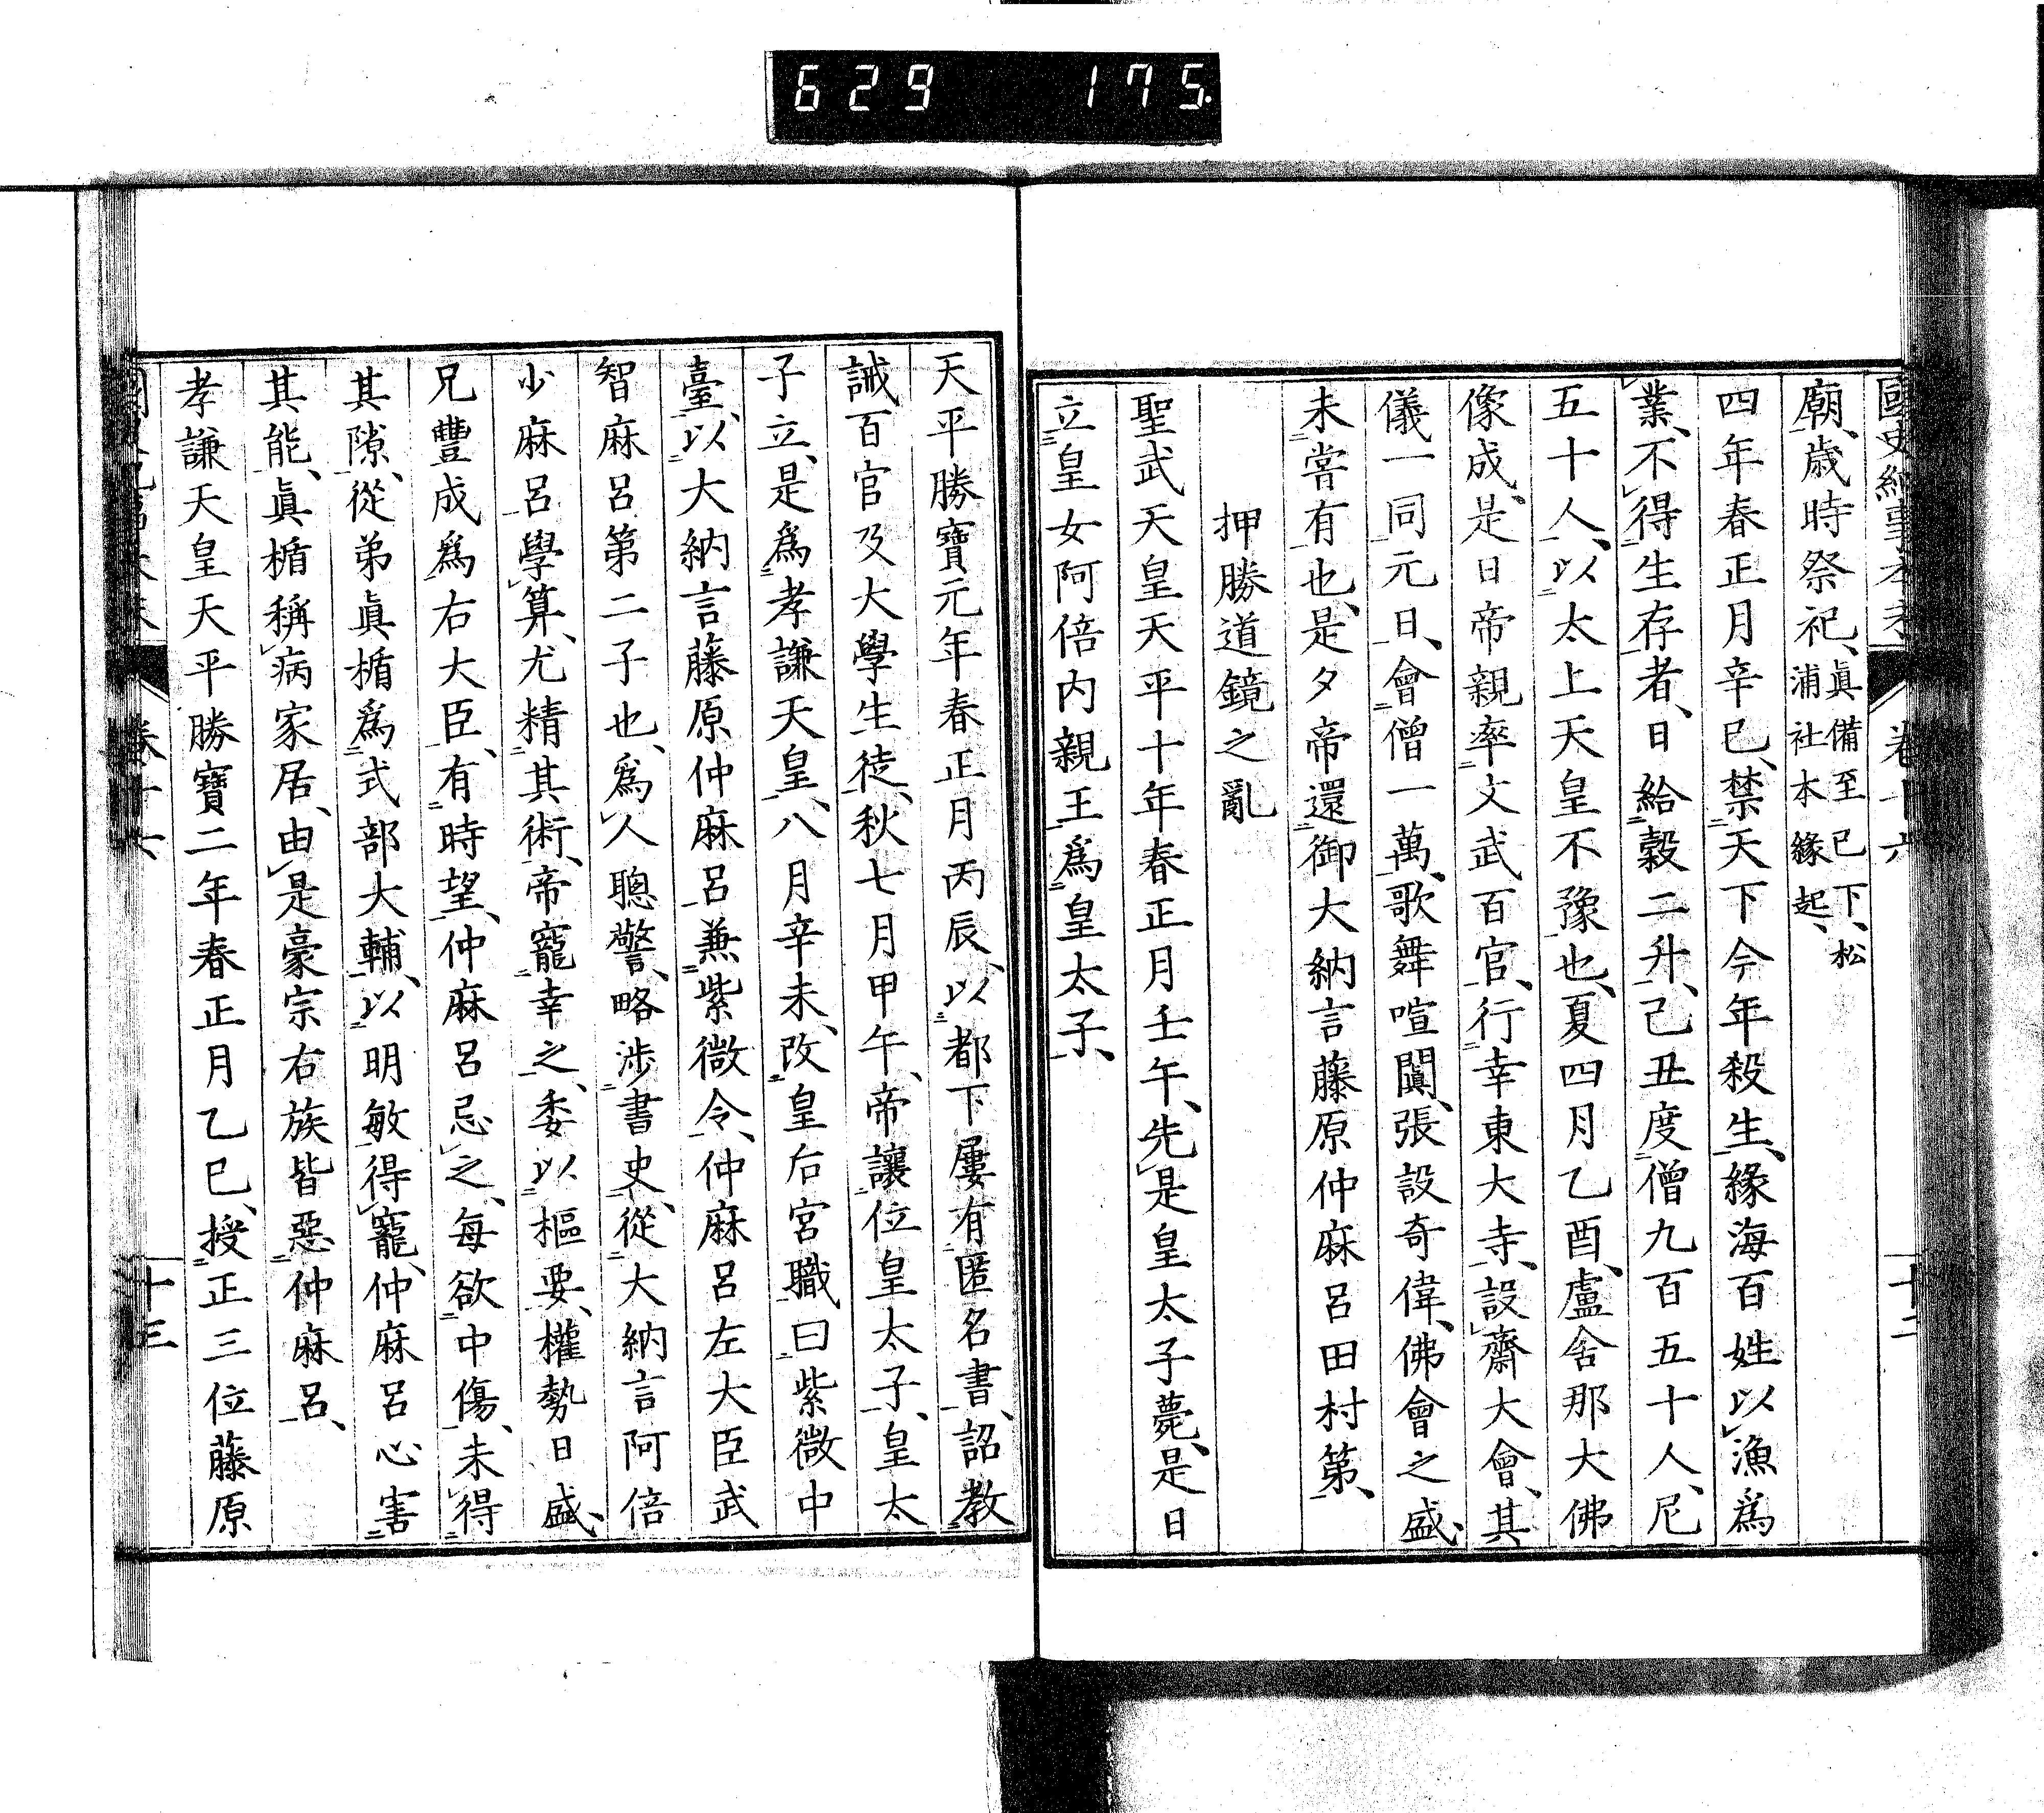 629 175
卷十六
廟、歳時祭祀、眞備至已下、松
浦社本緣起、
四年春正月辛巳、禁天下今年殺生、緣海百姓以漁爲
業、不得生存者、日給穀二升、己丑度僧九百五十人、尼
五十人、以太上天皇不豫也、夏四月乙酉、盧舍那大佛
像成、是日帝親率文武百官、行幸東大寺、設齋大會、其
儀一同元日、會僧一萬、歌舞喧闐、張設奇偉、佛會之盛、
未嘗有也、是夕帝還御大納言藤原仲麻呂田村第、
押勝道鏡之亂
聖武天皇天平十年春正月壬午、先是皇太子薨、是日
立皇女阿倍内親王爲皇太子、
天平勝寶元年春正月丙辰、以都下屢有匿名書、詔教
誡百官及大學生徒、秋七月甲午、帝讓位皇太子、皇太
子立、是爲孝謙天皇、八月辛未、改皇后宮職曰紫微中
臺、以大納言藤原仲麻呂兼紫微令、仲麻呂左大臣武
智麻呂第二子也、爲人聰警、略涉書史、從大納言阿倍
少麻呂學算、尤精其術、帝寵幸之、委以樞要、權勢日盛、
兄豐成爲右大臣、有時望、仲麻呂忌之、每欲中傷、未得
其隙、從弟眞楯爲式部大輔、以明敏得寵、仲麻呂心害
其能、眞楯稱病家居、由是豪宗右族皆惡仲麻呂、
孝謙天皇天平勝寶二年春正月乙巳、授正三位藤原
十三